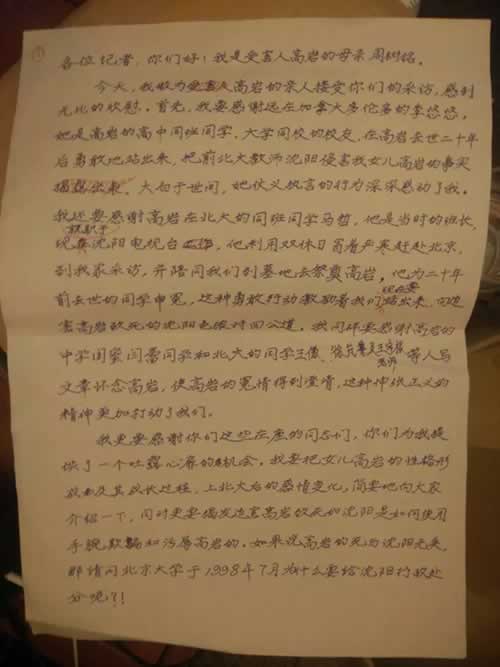 ①
各位记者，你们好！我是受害人高岩的母亲周树铭。
今天，我做为受害人高岩的亲人接受你们的采访，感到
无比的欣慰。首先，我要感谢远在加拿大多伦多的李悠悠，
她是高岩的高中同班同学，大学同校的校友，在高岩去世二十年
后勇敢地站出来，把前北大教师沈阳侵害我女儿高岩的事实
揭露出来，大白于世间，她仗义执言的行为深深感动了我。
我还要感谢高岩在北大的同班同学马哲，他是当时的班长，
现就职于沈阳电视台，他利用双休日冒着严寒赶赴北京，
到我家采访，并陪同我们到墓地去祭奠高岩，他为二十年
前去世的同学申冤，这种勇敢行动教励着我们站出来，向迫
害高岩致死的沈阳老贼讨回公道。我同样要感谢高岩的
中学闺蜜同学和北大的同学王傲、等人写
文章怀念高岩，使高岩的冤情得到声肯，这种伸张正义的
精神更加打动了我们。
我更要感谢你们这些在座的同志们，你们为我提
供了一个吐露心扉的机会，我要把女儿高岩的性格形
成以及其成长过程，上北大后的感情变化，简要地向大家
介绍一下，同时更要揭发迫害高岩致死的沈阳是如何使用
手腕欺骗和污辱高岩的。如果说高岩的死与沈阳无关，
那请问北京大学于1998年7月为什么要给沈阳行政处
分呢？！